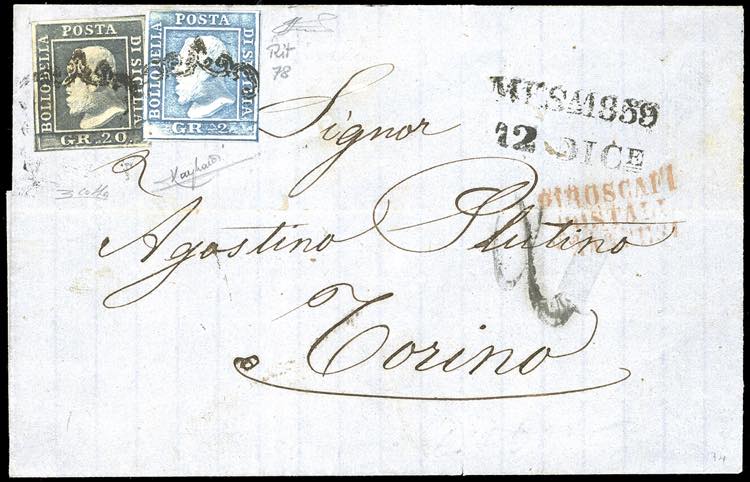 POSTA
BOLLO DELLA
DI SICILIA
GR. 20
POSTA
BOLLO DELLA
DI SICILIA
GR. 2
Rit
78
MES 1859
12 DICE
PIROSCAFI
POSTALI
Signor
Agostino Plutino
Torino